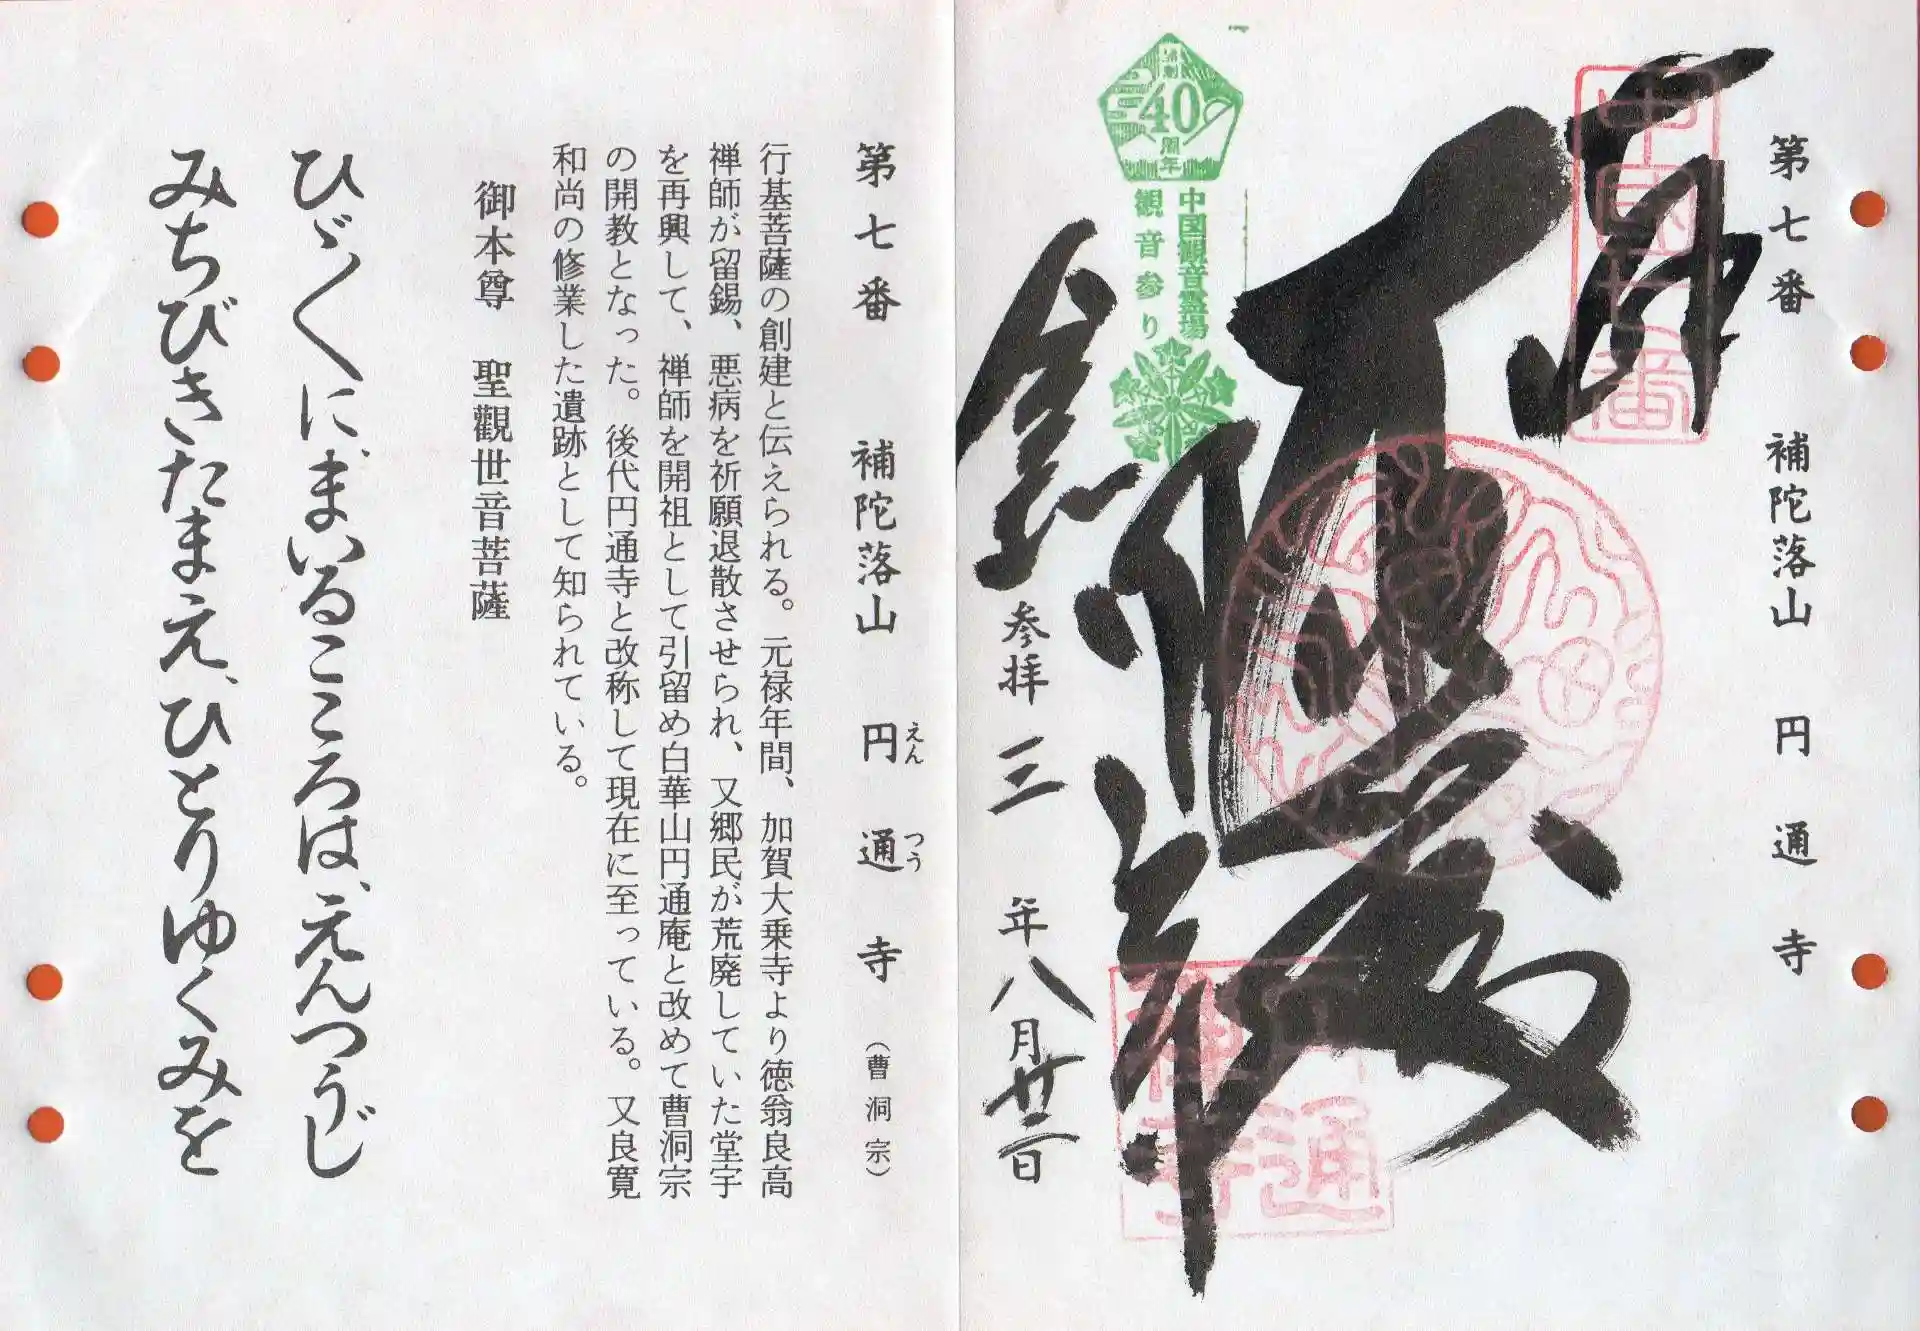 第七番　補陀落山　円通寺
中国七番
奉拝
円通
寺
参拝　三　年八月廿二日
40
周年
中国観音霊場
観音参り
第七番　補陀落山　円通寺（曹洞宗）
えん　つう
行基菩薩の創建と伝えられる。元禄年間、加賀大乗寺より徳翁良高
禅師が留錫、悪病を祈願退散させられ、又郷民が荒廃していた堂宇
を再興して、禅師を開祖として引留め白華山円通庵と改めて曹洞宗
の開教となった。後代円通寺と改称して現在に至っている。又良寛
和尚の修業した遺跡として知られている。
御本尊　聖観世音菩薩
ひゞ〱に、まいるこころは、えんつうじ
みちびきたまえ、ひとりゆくみを